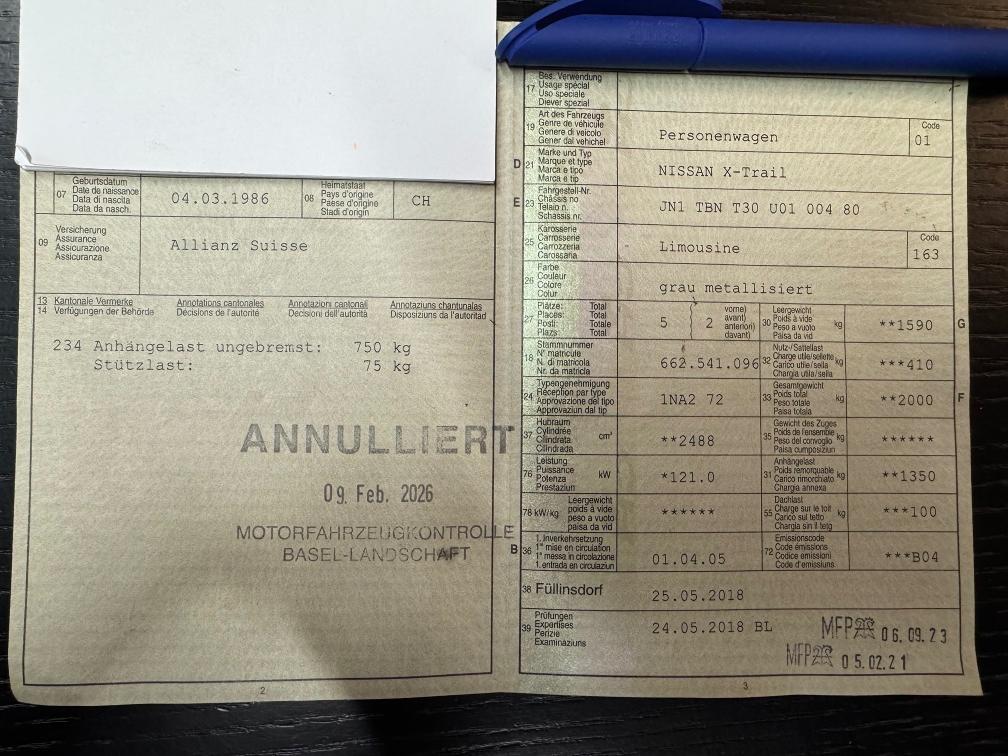 07 Geburtsdatum
Date de naissance
Data di nascita
Data da nasch.
04.03.1986
08 Heimatstaat
Pays d'origine
Paese d'origine
Stadi d'origin
CH
09 Versicherung
Assurance
Assicurazione
Assicuranza
Allianz Suisse
13 Kantonale Vermerke Annotations cantonales Annotazioni cantonali Annotaziuns chantunalas
14 Verfügungen der Behörde Décisions de l'autorité Decisioni dell'autorità Disposiziuns da l'autoritad
234 Anhängelast ungebremst: 750 kg
Stützlast: 75 kg
ANNULLIERT
09. Feb. 2026
MOTORFAHRZEUGKONTROLLE
BASEL-LANDSCHAFT
2
17 Bes. Verwendung
Usage spécial
Uso speciale
Diever spezial
19 Art des Fahrzeugs
Genre de véhicule
Genere di veicolo
Gener dal vehichel
Personenwagen
Code
01
D 21 Marke und Typ
Marque et type
Marca e tipo
Marca e tip
NISSAN X-Trail
E 23 Fahrgestell-Nr.
Châssis no
Telaio n.
Schassis nr.
JN1 TBN T30 U01 004 80
25 Karosserie
Carrosserie
Carrozzeria
Carossaria
Limousine
Code
163
26 Farbe
Couleur
Colore
Colur
grau metallisiert
27 Plätze: Total
Places: Total
Posti: Totale
Plazs: Total
5
vorne)
avant)
anteriori)
davant)
2
30 Leergewicht
Poids à vide
Peso a vuoto
Paisa da vid
kg
**1590
G
18 Stammnummer
N° matricule
N. di matricola
Nr. da matricla
662.541.096
32 Nutz-/Sattellast
Charge utile/sellette
Carico utile/sella
Chargia utila/sella
kg
***410
24 Typengenehmigung
Réception par type
Approvazione del tipo
Approvaziun dal tip
1NA2 72
33 Gesamtgewicht
Poids total
Peso totale
Paisa totala
kg
**2000
F
37 Hubraum
Cylindrée
Cilindrata
Cilindrada
cm³
**2488
35 Gewicht des Zuges
Poids de l'ensemble
Peso del convoglio
Paisa cumposiziun
kg
******
76 Leistung
Puissance
Potenza
Prestaziun
kW
*121.0
31 Anhängelast
Poids remorquable
Carico rimorchiato
Chargia annexa
kg
**1350
78 kW/kg
Leergewicht
poids à vide
peso a vuoto
paisa da vid
******
55 Dachlast
Charge sur le toit
Carico sul tetto
Chargia sin il tetg
kg
***100
B 36 1. Inverkehrsetzung
1re mise en circulation
1a messa in circolazione
1. entrada en circulaziun
01.04.05
72 Emissionscode
Code émissions
Codice emissioni
Code d'emissiuns
***B04
38 Füllinsdorf
25.05.2018
39 Prüfungen
Expertises
Perizie
Examinaziuns
24.05.2018 BL
MFP 06.09.23
MFP 05.02.21
3